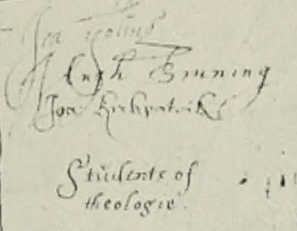 Joa Young
Hugh Binning
Joa Kirkpatrik
Students of
theologie.